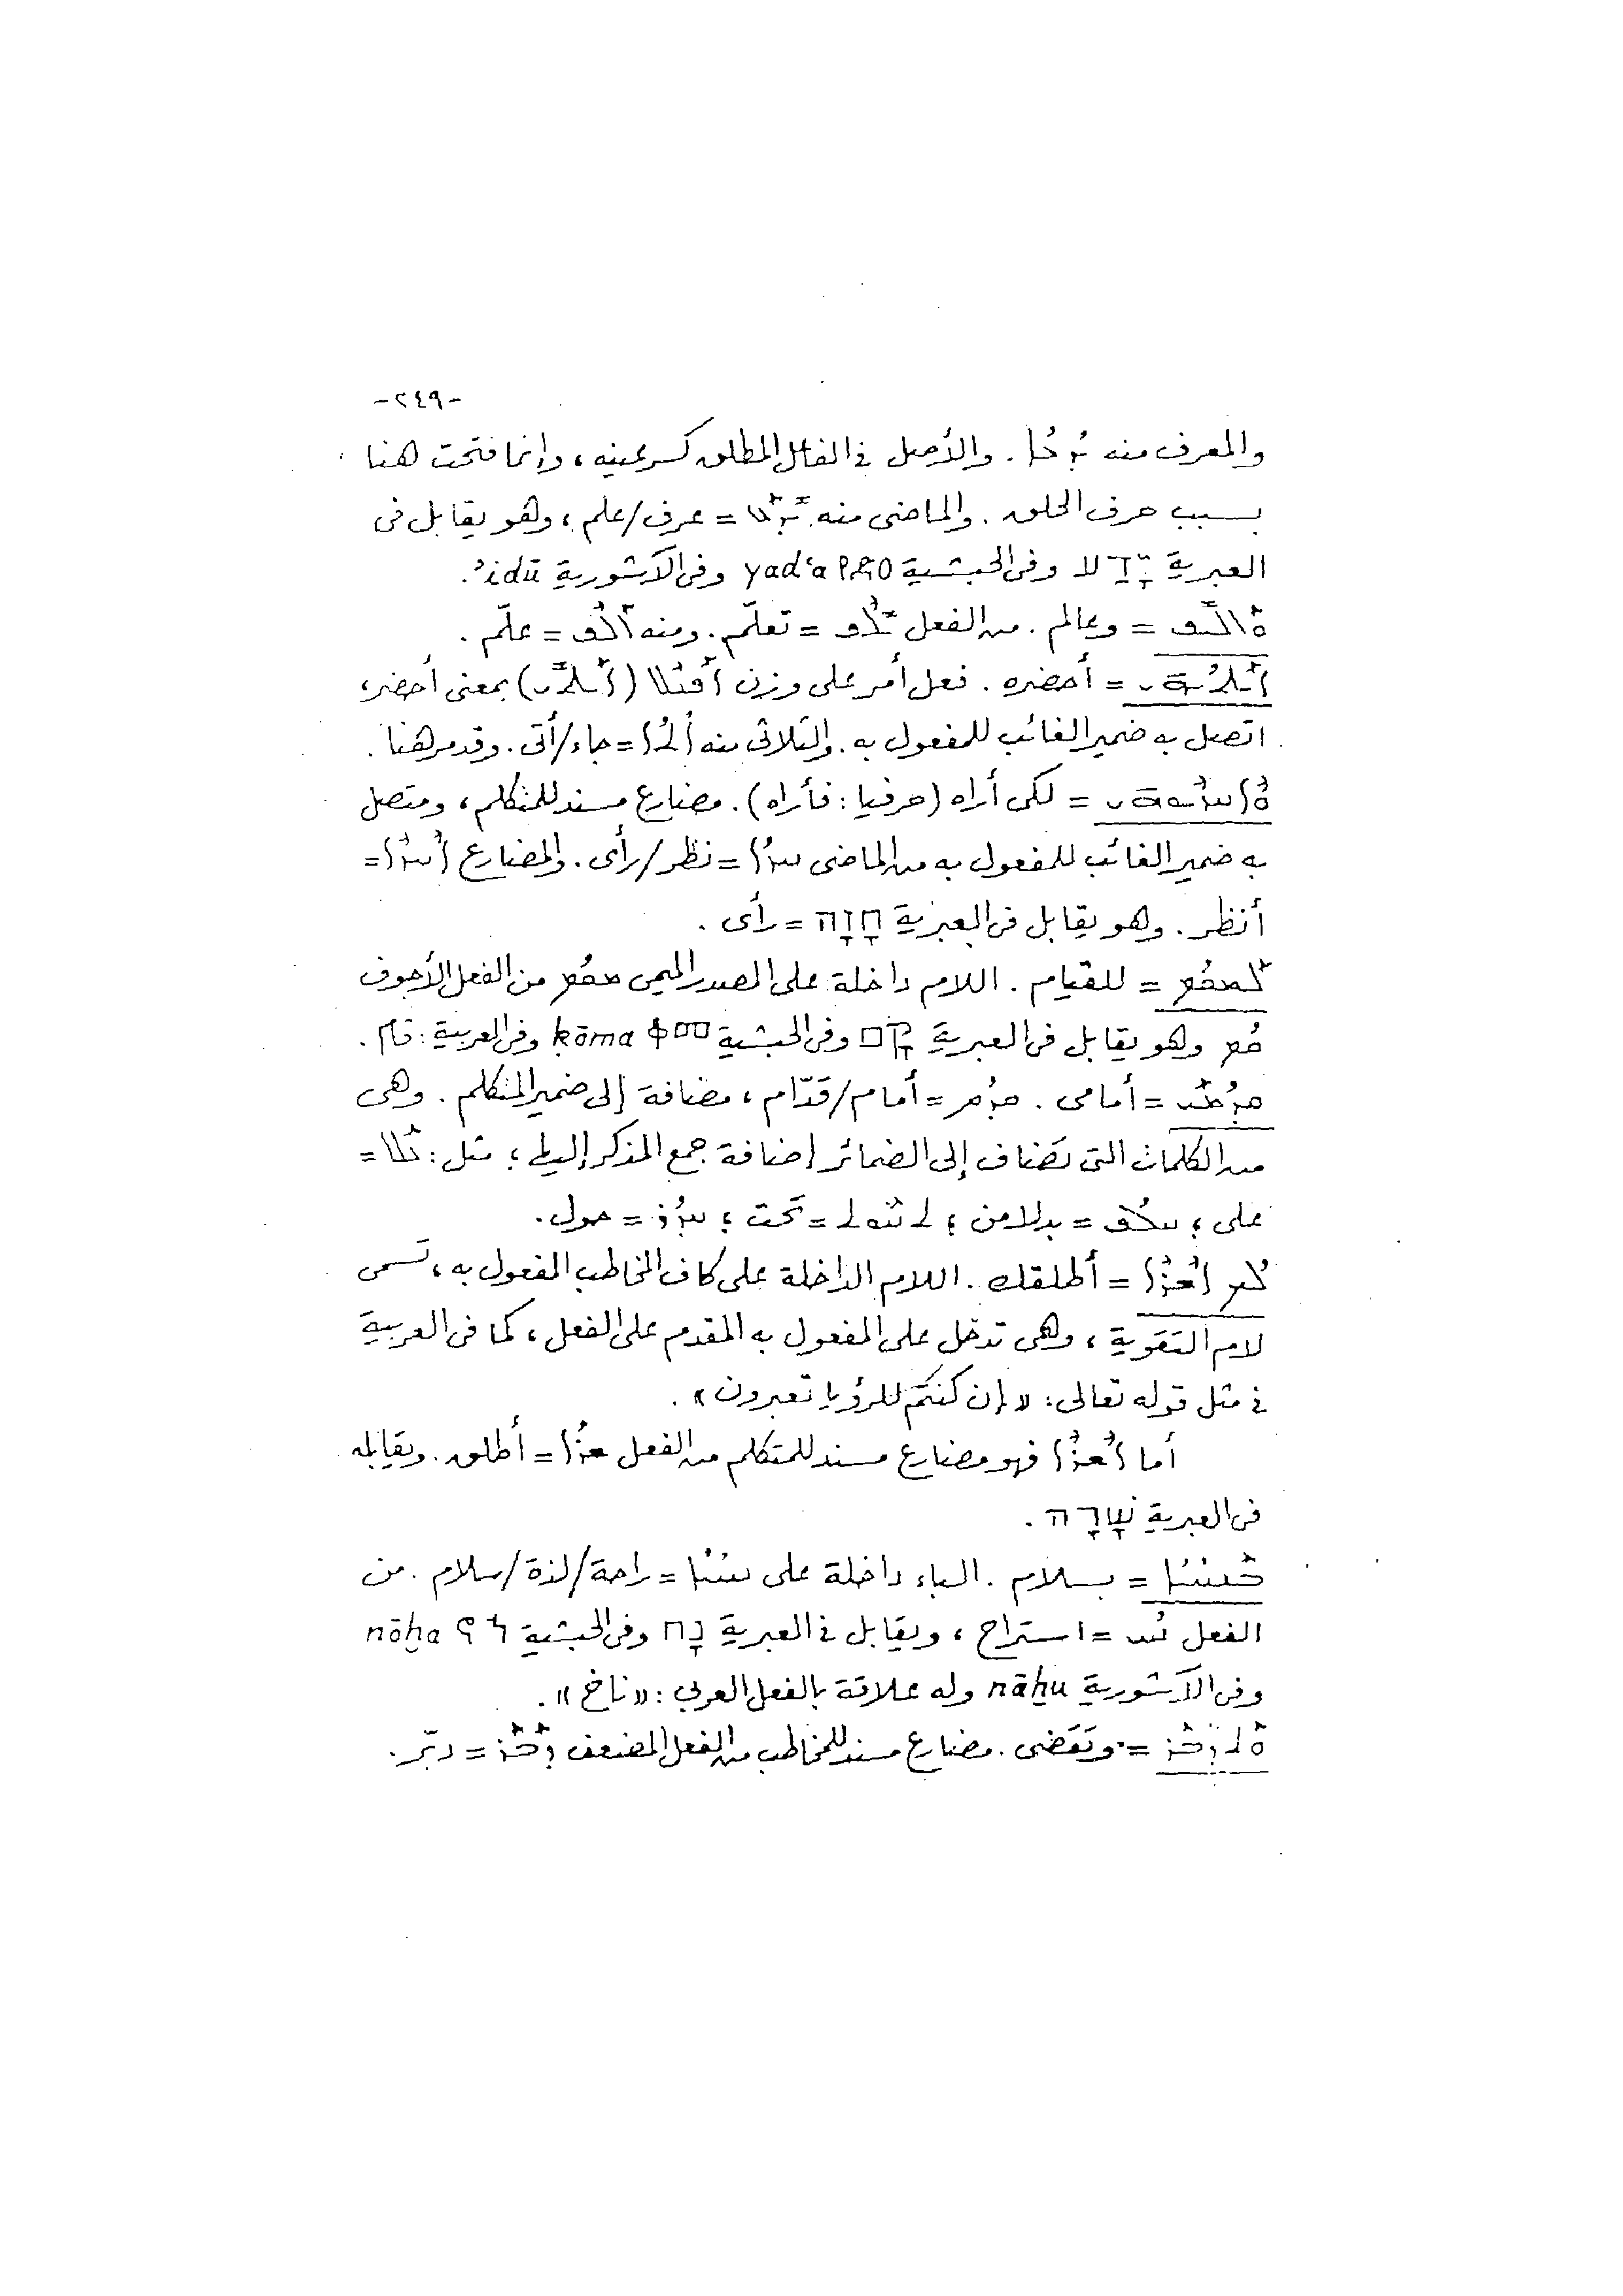 -٢٤٩-
والمعرف منه ܝܕܥܐ . والأصل في الفاعل المطلق كسر عينه ، وإنما فتحت هنا
بسبب حرف الحلق . والماضى منه ܝܕܥ = عرف/علم ، وهو يقابل فى
العبرية יָדַע وفى الحبشية የድዐ yad‘a وفى الآشورية idū’.
ܘܐܠܦ = وعالم . من الفعل = تعلّم . ومنه ܐܠܦ = علّم .
ܐܝܬܝܘܗܝ = أحضره . فعل أمر على وزن ܐܦܥܠ (ܐܝܬܐ) بمعنى أحضر،
اتصل به ضمير الغائب للمفعول به . والثلاثى منه ܐܬܐ = جاء/أتى . وقد مر هنا .
ܘܐܚܙܝܘܗܝ = لكى أراه (حرفيا : فأراه) . مضارع مسند للمتكلم ، ومتصل
به ضمير الغائب للمفعول به من الماضى ܚܙܐ = نظر/رأى . والمضارع ܐܚܙܐ =
أنظر . وهو يقابل فى العبرية חָזָה = رأى .
ܠܡܩܡ = للقيام . اللام داخلة على المصدر الميمى ܡܩܡ من الفعل الأجوف
ܩܡ وهو يقابل فى العبرية קָם وفى الحبشية ቆመ ḳōma وفى العربية : قام .
ܩܕܡܝ = أمامى . ܩܕܡ = أمام/قدّام ، مضافة إلى ضمير المتكلم . وهى
من الكلمات التى تضاف إلى الضمائر إضافة جمع المذكر إليها ؛ مثل : ܥܠ =
على ؛ ܚܠܦ = بدلا من ؛ ܬܚܘܬ = تحت ؛ ܚܕܪ = حول .
ܠܟ ܐܫܪܐ = أطلقك . اللام الداخلة على كاف المخاطب المفعول به ، تسمى
لام التقوية ، وهى تدخل على المفعول به المقدم على الفعل ، كما فى العربية
في مثل قوله تعالى : « إن كنتم للرؤيا تعبرون » .
أما ܐܫܪܐ فهو مضارع مسند للمتكلم من الفعل ܫܪܐ = أطلق . ويقابله
فى العبرية שָׁרָה .
ܒܢܝܚܐ = بسلام . الباء داخلة على ܢܝܚܐ = راحة/لذة/سلام . من
الفعل ܢܚ = استراح ، ويقابل في العبرية נָח وفى الحبشية ኖኀ nōḫa
وفى الآشورية nāḫu وله علاقة بالفعل العربى : « ناخ » .
ܘܬܕܒܪ = وتقضى . مضارع مسند للمخاطب من الفعل المضعف ܕܒܪ = دبّر .